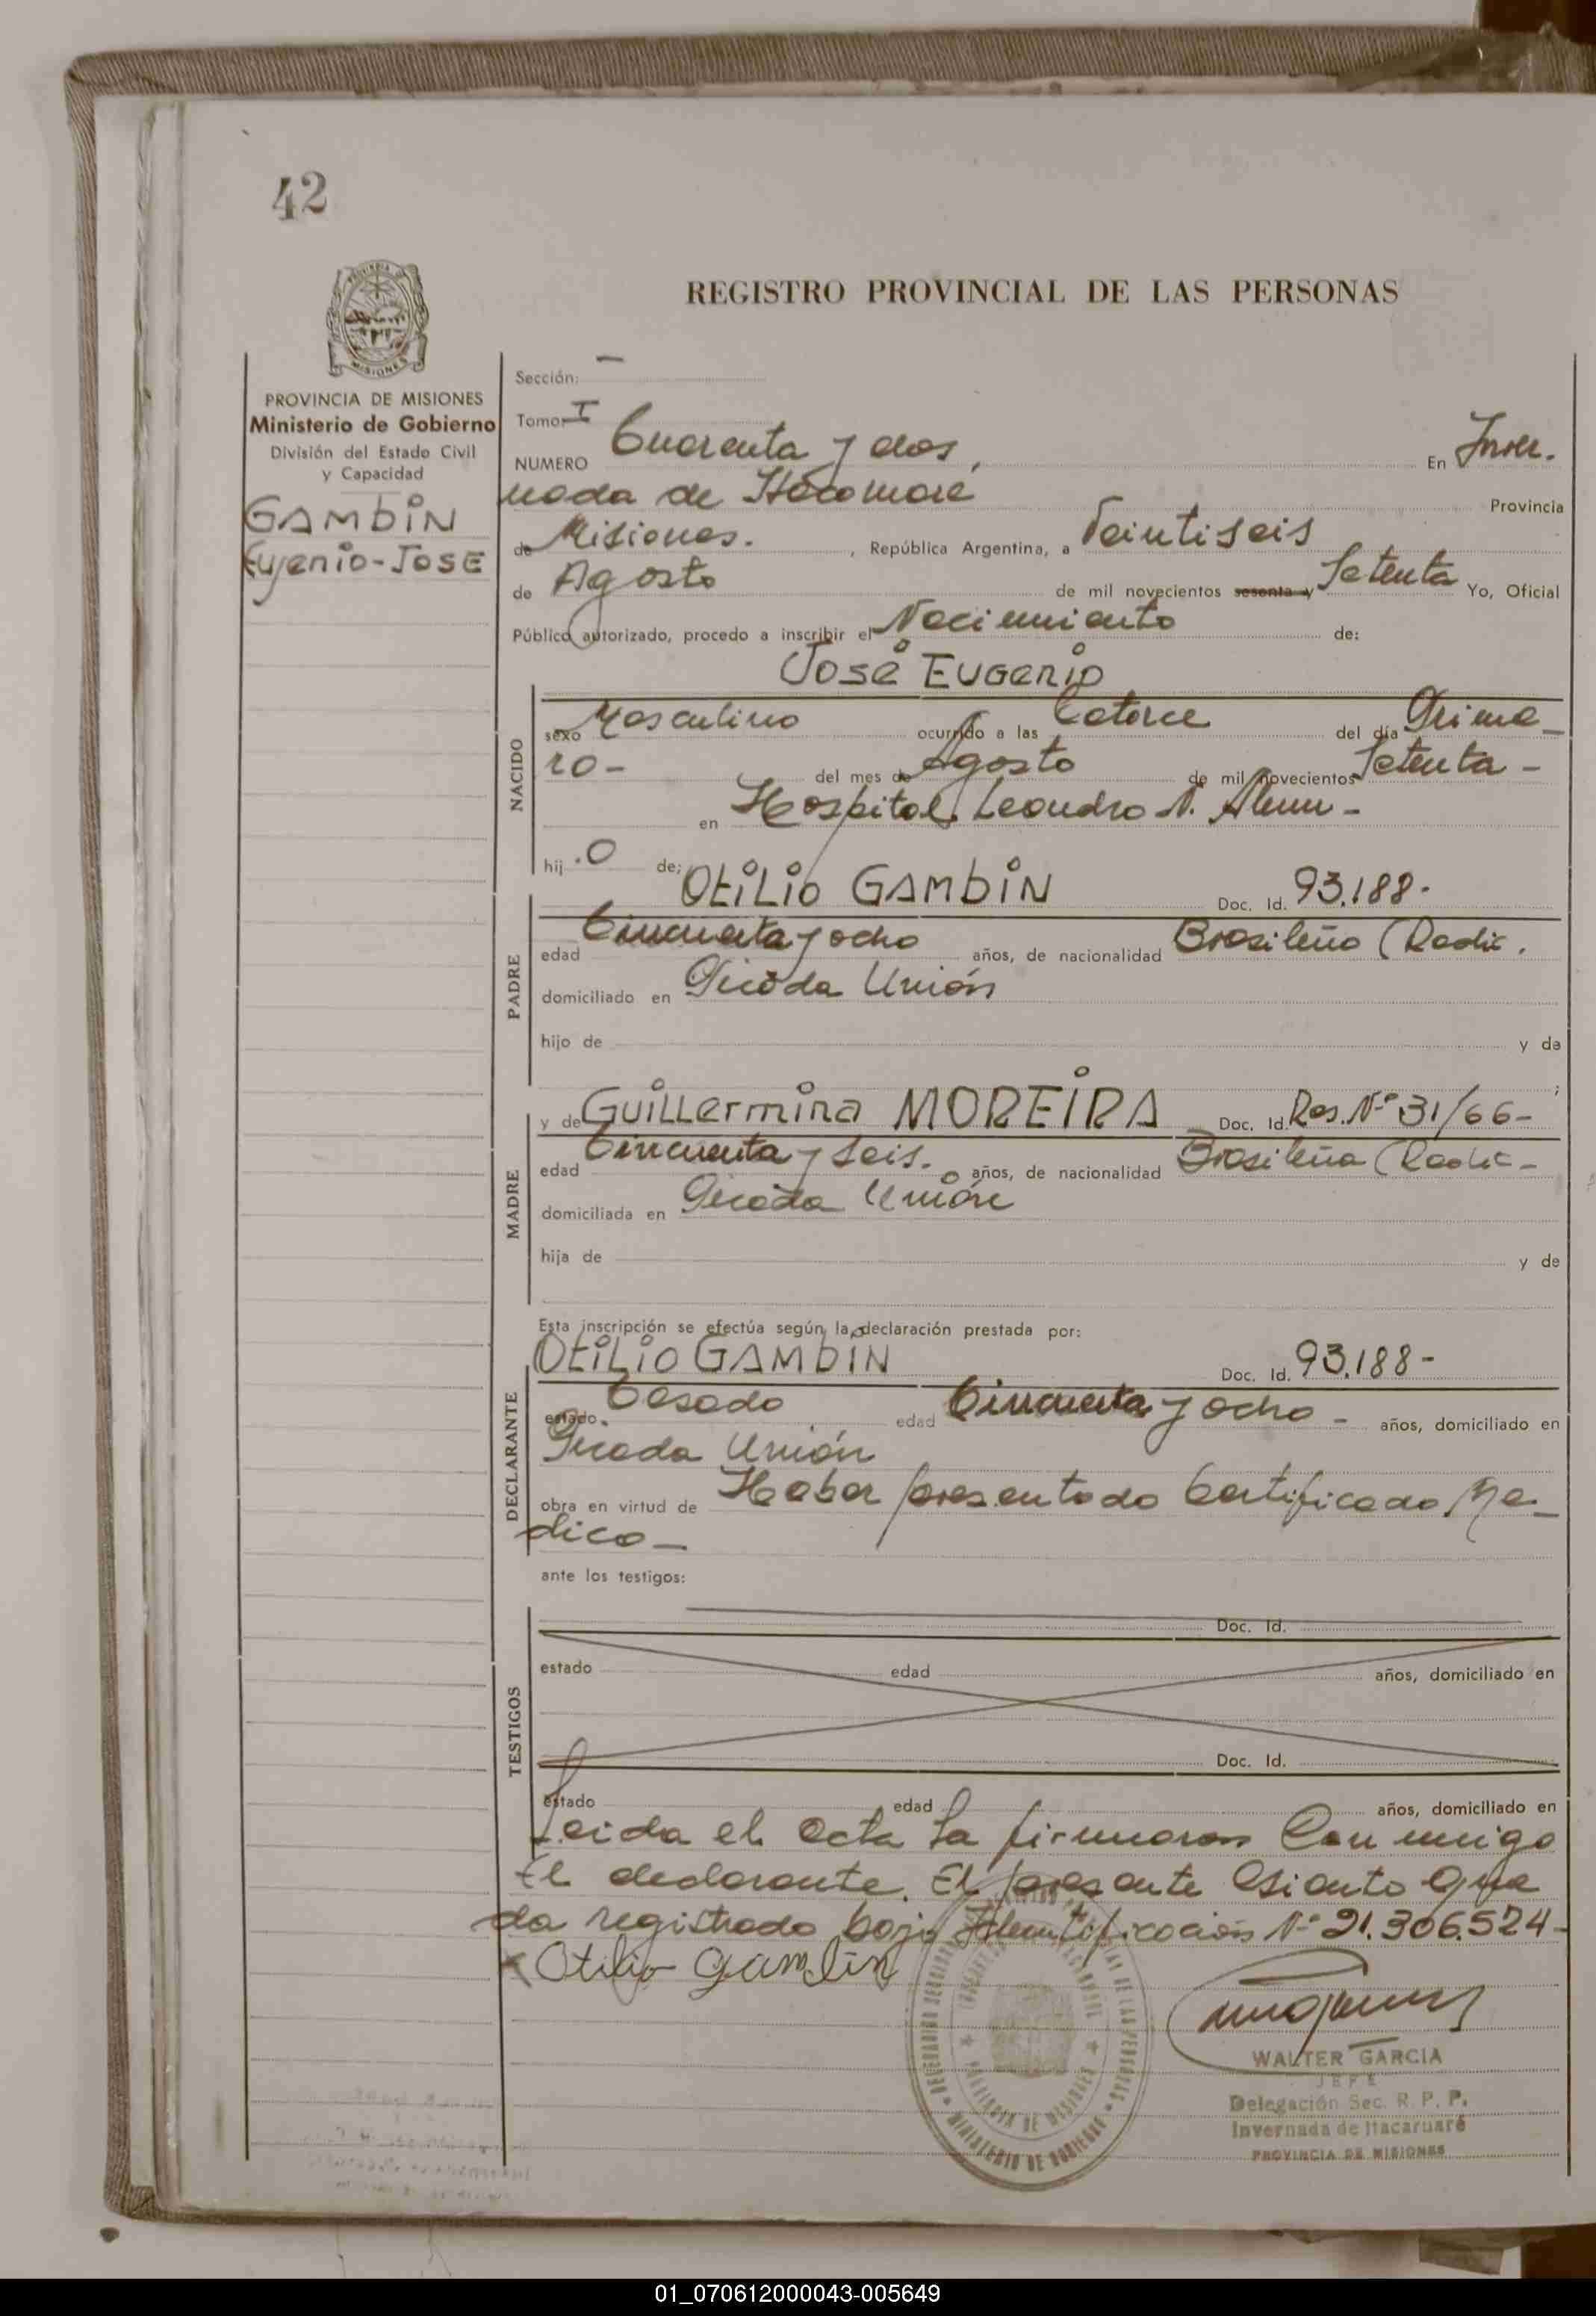 42
REGISTRO PROVINCIAL DE LAS PERSONAS
MISIONES
PROVINCIA DE MISIONES
Ministerio de Gobierno
División del Estado Civil
y Capacidad
GAMBIN
Eugenio-JOSE
Sección: —
Tomo I
NUMERO Cuarenta y dos, En Inver.
nada de Itacaruaré Provincia
de Misiones. , República Argentina, a Veintiseis
de Agosto de mil novecientos sesenta y Setenta Yo, Oficial
Público autorizado, procedo a inscribir el Nacimiento de:
José Eugenio
NACIDO
sexo Masculino ocurrido a las Catorce del día Prime-
ro- del mes de Agosto de mil novecientos Setenta -
en Hospital Leandro N. Alem -
hij.o de; Otilio GAMBIN Doc. Id. 93.188-
PADRE
edad Cincuenta y ocho años, de nacionalidad Brasileño (Radic.
domiciliado en Picada Unión
hijo de y de
MADRE
y de Guillermina MOREIRA Doc. Id. Res. Nº 31/66-
edad Cincuenta y seis. años, de nacionalidad Brasileña (Radic-
domiciliada en Picada Unión
hija de y de
Esta inscripción se efectúa según la declaración prestada por:
DECLARANTE
Otilio GAMBIN Doc. Id. 93.188-
estado Casado edad Cincuenta y ocho - años, domiciliado en
Picada Unión
obra en virtud de Haber presentado Certificado Me-
dico-
ante los testigos:
TESTIGOS
Doc. Id.
estado edad años, domiciliado en
Doc. Id.
estado edad años, domiciliado en
Leida el acta la firmaron Conmigo
El declarante. El presente Asiento que
da registrado bajo Identificación Nº 21.306.524-
x Otilio Gambin
WALTER GARCIA
JEFE
Delegación Sec. R. P. P.
Invernada de Itacaruaré
PROVINCIA DE MISIONES
PROVINCIA DE MISIONES
MINISTERIO DE GOBIERNO
01_070612000043-005649